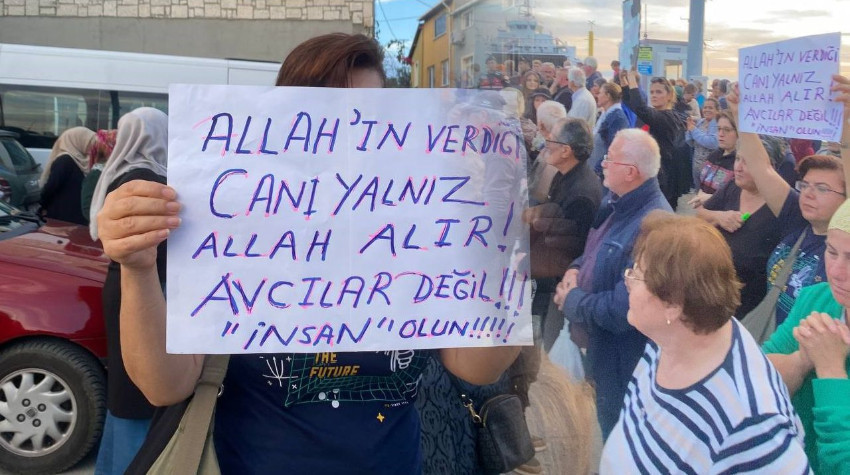 ALLAH'IN VERDİĞİ
CANI YALNIZ
ALLAH ALIR!
AVCILAR DEĞİL!!!
"İNSAN" OLUN!!!!!
THE FUTURE
ALLAH'IN VERDİĞİ
CANI YALNIZ
ALLAH ALIR
AVCILAR DEĞİL!!!
"İNSAN" OLUN!!!!